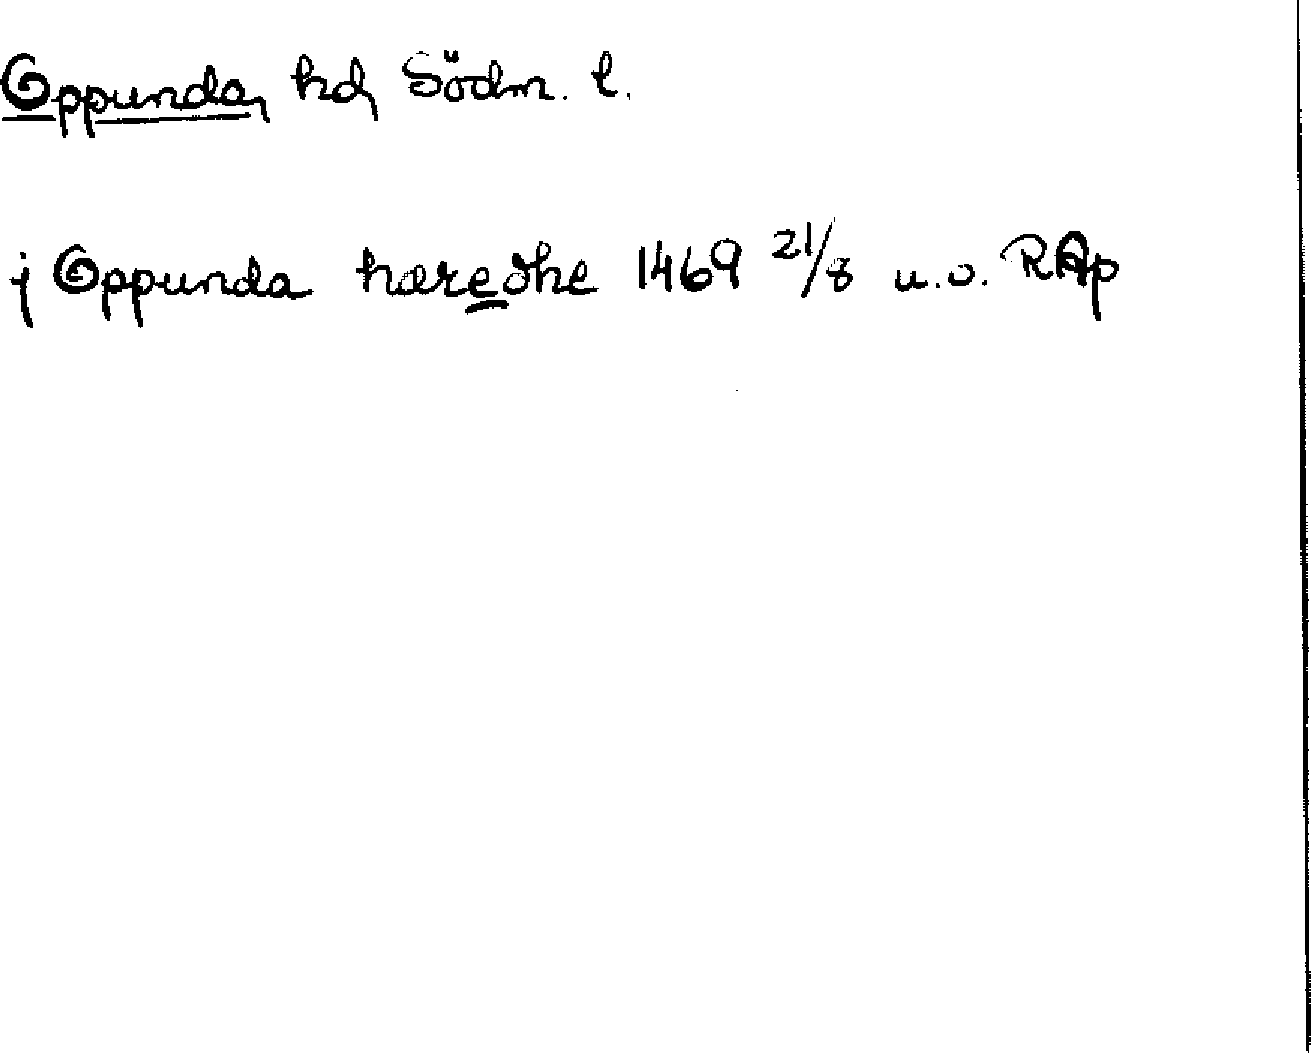 Oppunda, hd, Södm. l.
j Oppunda hæredhe 1469 21/8 u.o. RAp